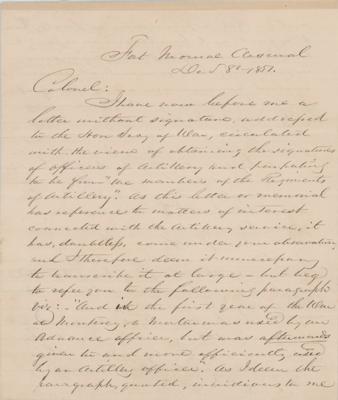 Fort Monroe Arsenal
Dec 8th 1851.
Colonel:
I have now before me a
letter without signature, addressed
to the Hon Secy of War, circulated
with the view of obtaining the signatures
of officers of Artillery and purporting
to be from "the members of the Regiments
of Artillery". As this letter or memorial
has reference to matters of interest
connected with the Artillery service, it
has, doubtless, come under your observation
and I therefore deem it unnecessary
to transcribe it at large - but beg
to refer you to the following paragraph
viz: "And in the first year of the War
at Monterey, a Mortar was used by an
Ordnance officer, but was afterwards
given to and more efficiently used
by an Artillery officer." As I deem the
paragraph, quoted, invidious to me